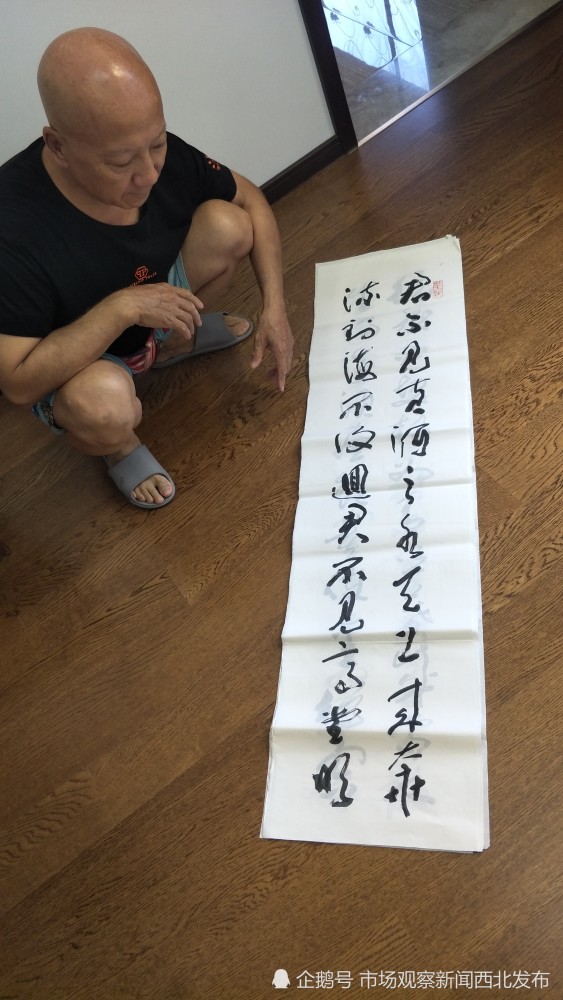 君不見黃河之水天上來奔
流到海不復迴君不見高堂明
企鹅号 市场观察新闻西北发布